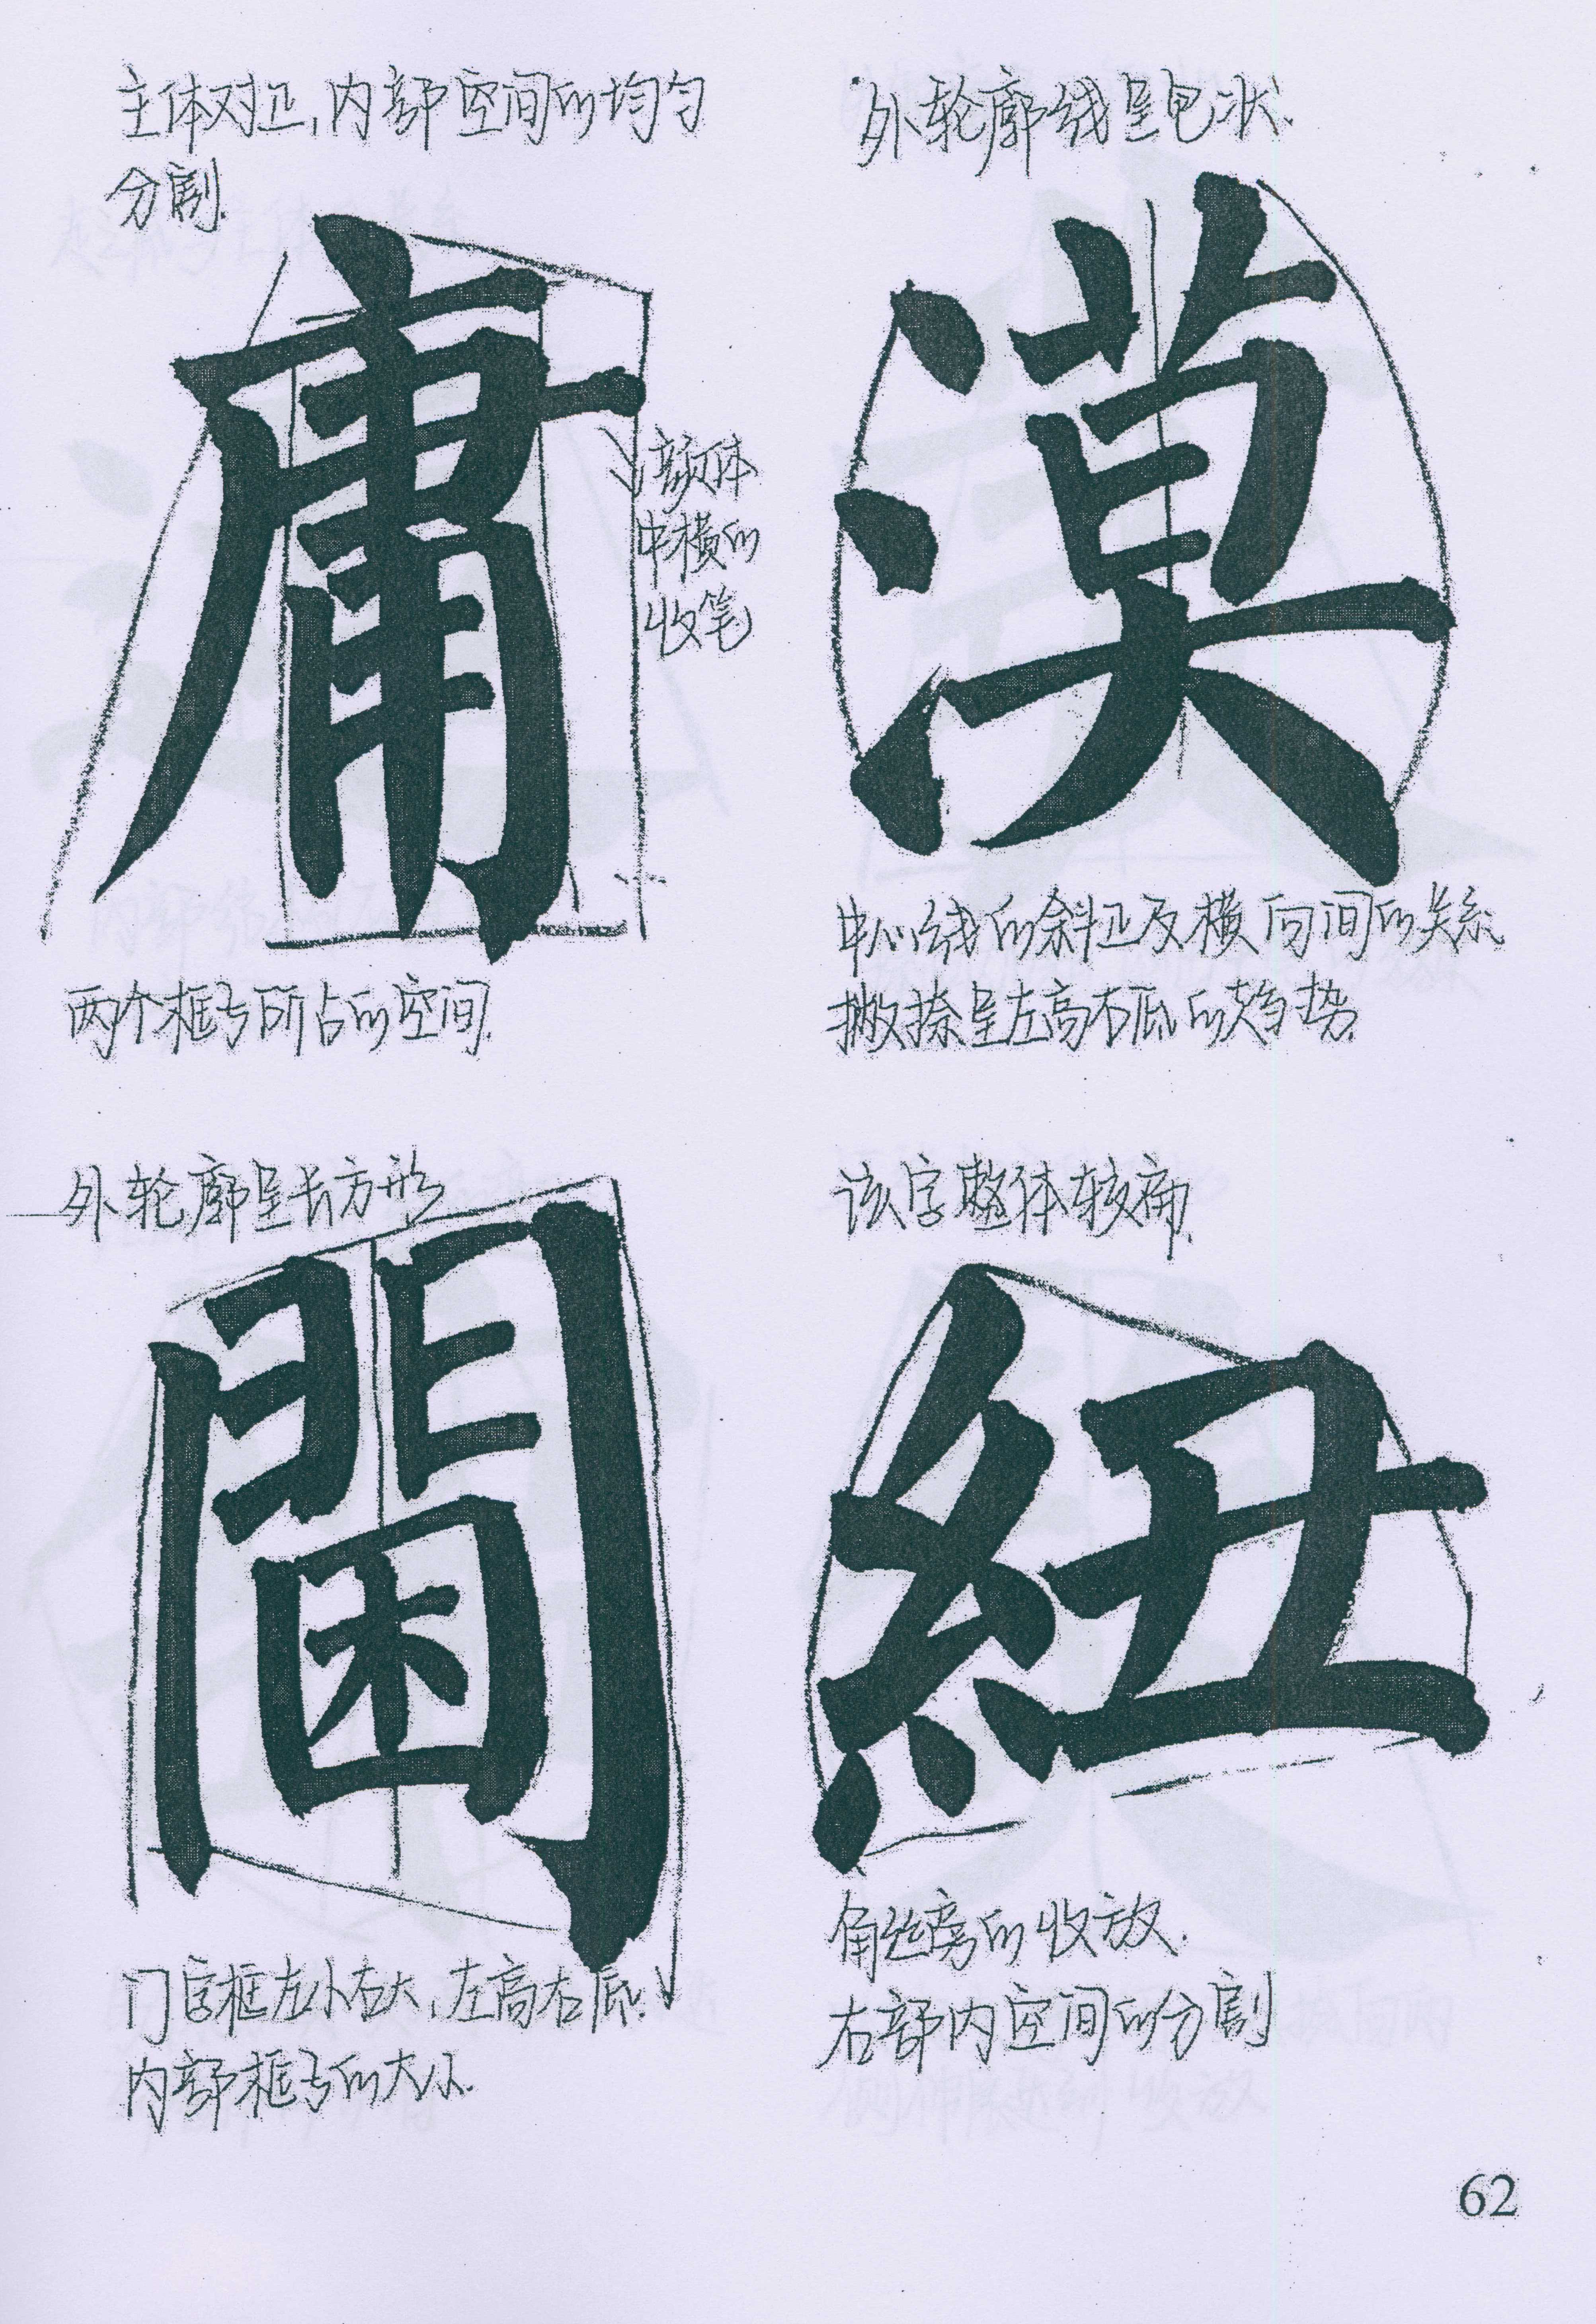 主体对正,内部空间的均匀
分割.
庸
颜体
中横的
收笔
两个框与所占的空间.
外轮廓线呈包状.
漠
中心线的斜正及横向间的关系
撇捺呈左高右低的趋势.
外轮廓呈长方形
閫
门字框左小右大,左高右底.
内部框与的大小.
该字整体较扁.
紐
角丝旁的收放.
右部内空间的分割
62